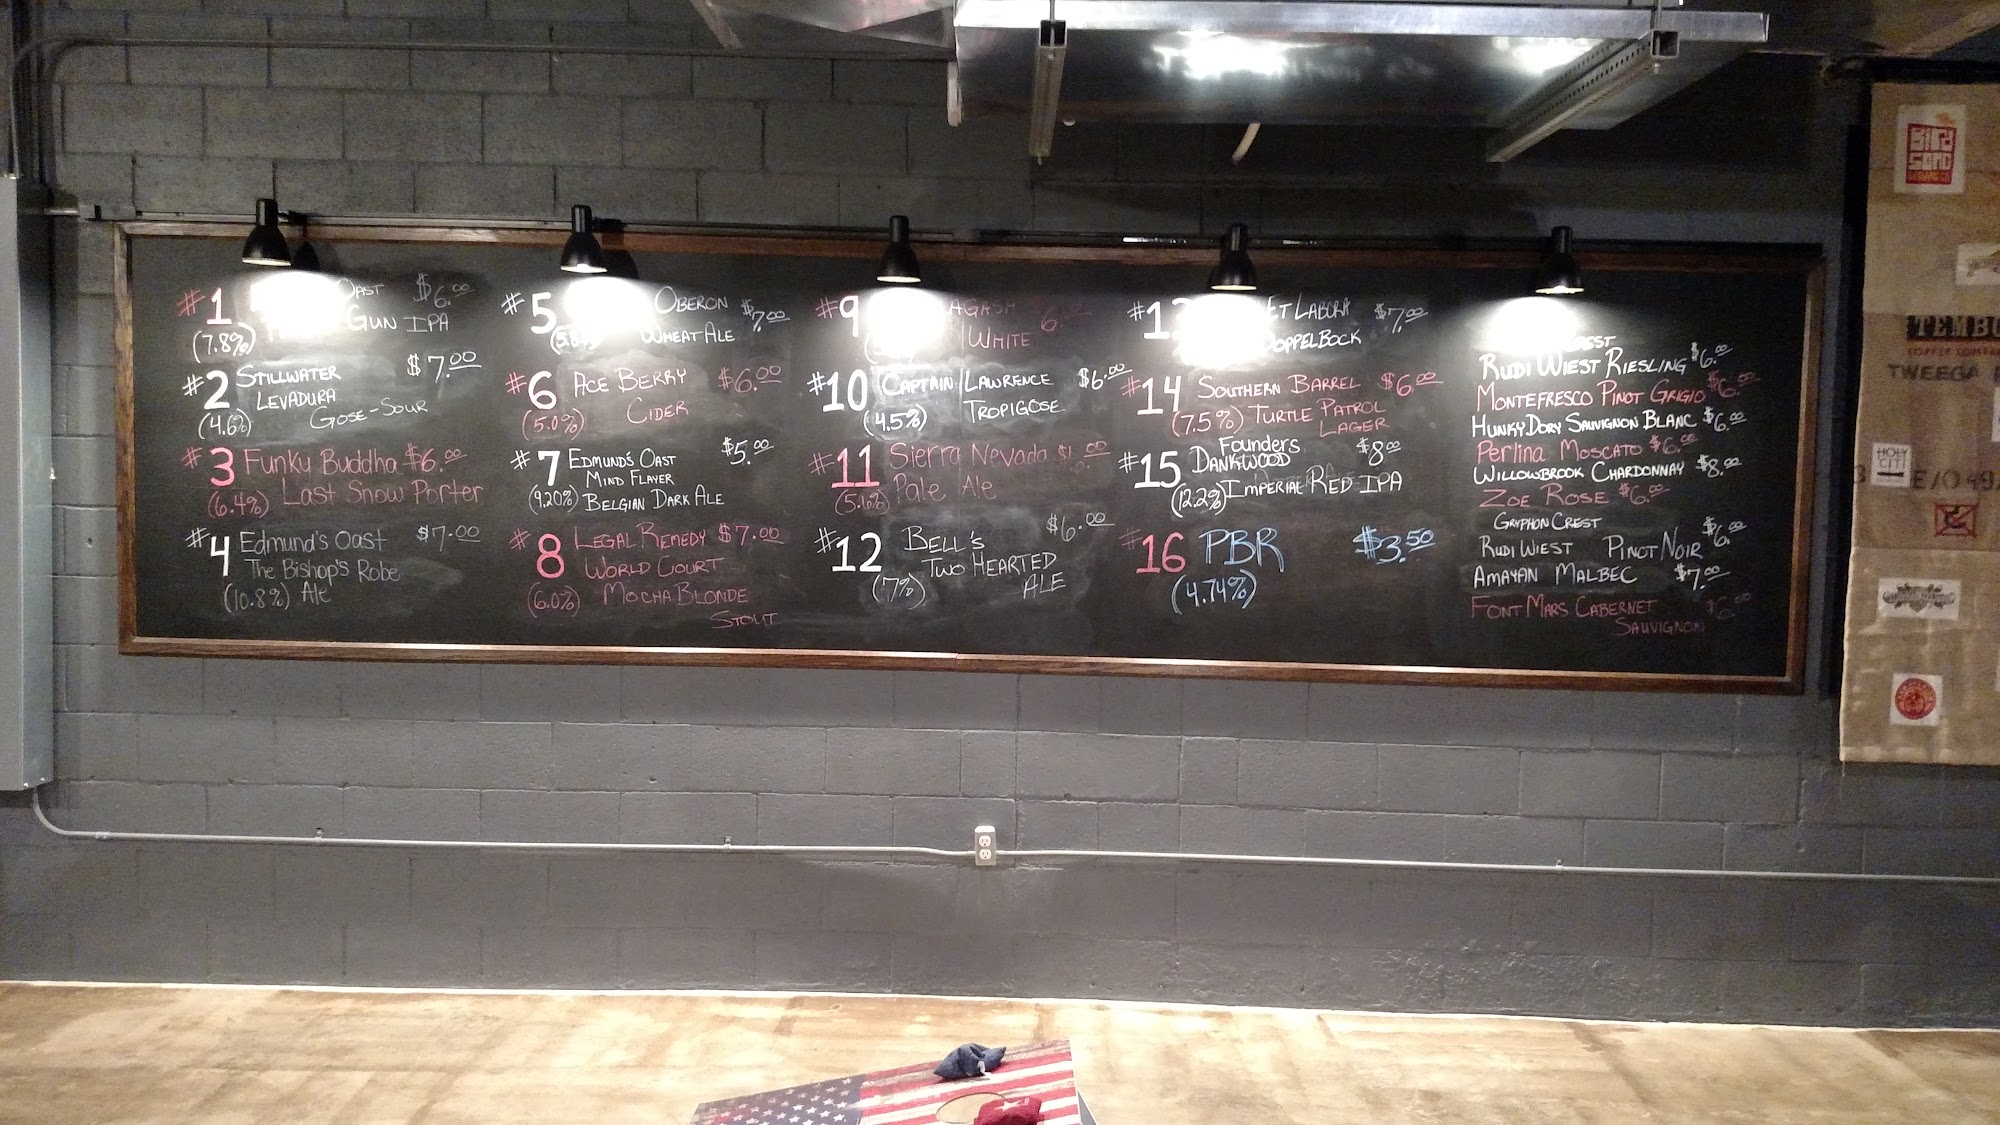 #1 OAST $6.00
GUN IPA
(7.8%)
#2 STILLWATER $7.00
LEVADURA
(4.6%) GOSE-SOUR
#3 Funky Buddha $6.00
(6.4%) Last Snow Porter
#4 Edmund's Oast $7.00
The Bishop's Robe
(10.8%) Ale
#5 OBERON $7.00
WHEAT ALE
#6 ACE BERRY $6.00
(5.0%) CIDER
#7 EDMUND'S OAST $5.00
MIND FLAYER
(9.20%) BELGIAN DARK ALE
#8 LEGAL REMEDY $7.00
WORLD COURT
(6.0%) MOCHA BLONDE
STOUT
#9 AGASH 6.00
WHITE
#10 CAPTAIN LAWRENCE $6.00
(4.5%) TROPIGOSE
#11 Sierra Nevada
Pale Ale
#12 BELL'S $6.00
TWO HEARTED
(7%) ALE
ET LABORA $7.00
DOPPELBOCK
#14 SOUTHERN BARREL $6.00
(7.5%) TURTLE PATROL
LAGER
#15 Founders $8.00
DANKWOOD
(12.2%) IMPERIAL RED IPA
#16 PBR $3.50
(4.74%)
RUDI WIEST RIESLING $6.00
MONTEFRESCO PINOT GRIGIO $6.00
HUNKY DORY SAUVIGNON BLANC $6.00
Perlina Moscato $6.00
WILLOWBROOK CHARDONNAY $8.00
ZOE ROSE $6.00
GRYPHON CREST
RUDI WIEST PINOT NOIR $6.00
AMAYAN MALBEC $7.00
FONT MARS CABERNET $6.00
SAUVIGNON
BiRd
SONG
TEMBO
COFFEE COMPA
TWEEGA
HOLY
CITY
E/049